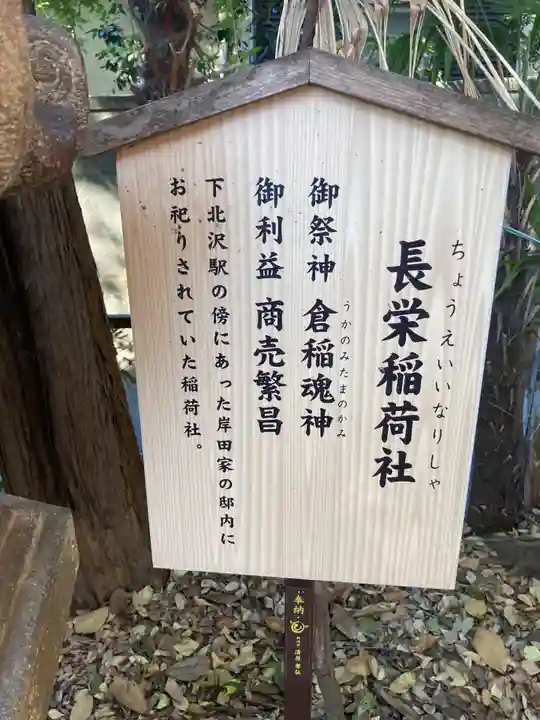 ちょうえいいなりしゃ
長栄稲荷社
御祭神 倉稲魂神
うかのみたまのかみ
御利益 商売繁昌
下北沢駅の傍にあった岸田家の邸内に
お祀りされていた稲荷社。
奉納